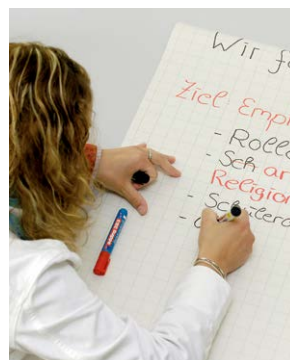 Wir fo
Ziel Empf
- Rolle
- Sch ar
Religion
- Schülero
-